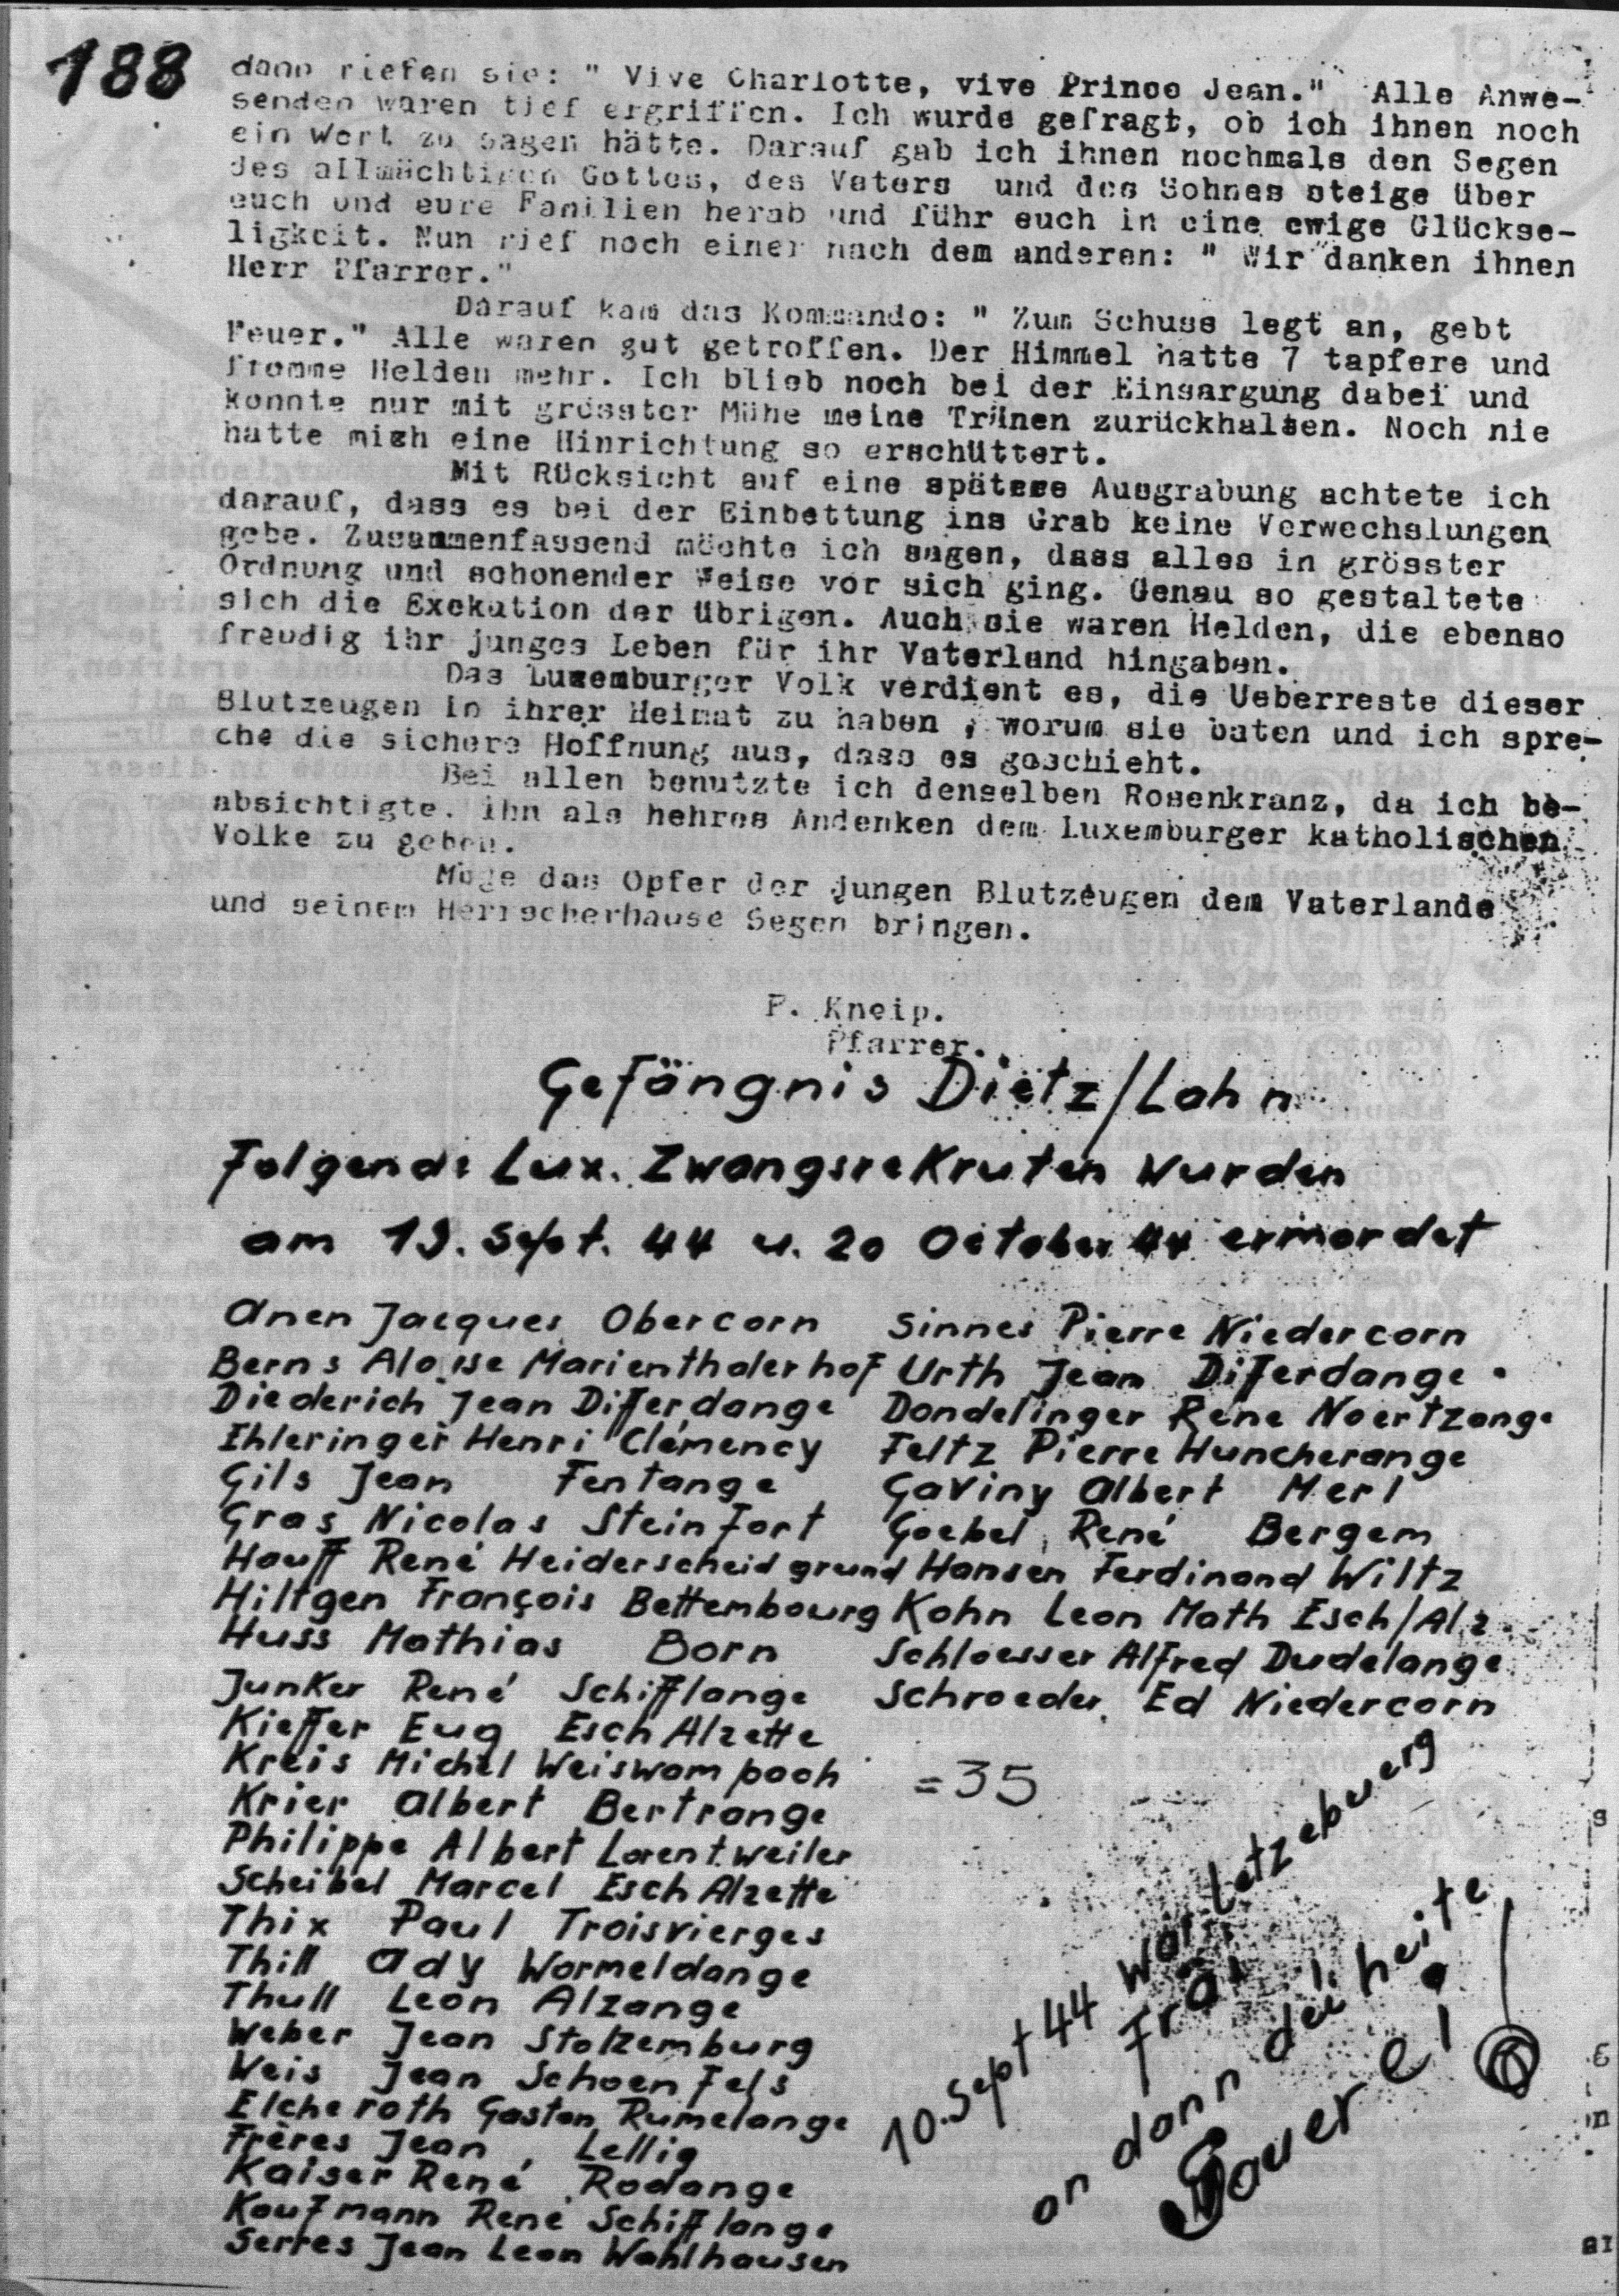 188
dann riefen sie: " Vive Charlotte, vive Prince Jean." Alle Anwe-
senden waren tief ergriffen. Ich wurde gefragt, ob ich ihnen noch
ein Wort zu sagen hätte. Darauf gab ich ihnen nochmals den Segen
des allmächtigen Gottes, des Vaters und des Sohnes steige über
euch und eure Familien herab und führ euch in eine ewige Glückse-
ligkeit. Nun rief noch einer nach dem anderen: " Wir danken ihnen
Herr Pfarrer."
Darauf kam das Kommando: " Zum Schuss legt an, gebt
Feuer." Alle waren gut getroffen. Der Himmel hatte 7 tapfere und
fromme Helden mehr. Ich blieb noch bei der Einsargung dabei und
konnte nur mit grösster Mühe meine Tränen zurückhalten. Noch nie
hatte mich eine Hinrichtung so erschüttert.
Mit Rücksicht auf eine spätere Ausgrabung achtete ich
darauf, dass es bei der Einbettung ins Grab keine Verwechslungen
gebe. Zusammenfassend möchte ich sagen, dass alles in grösster
Ordnung und schonender Weise vor sich ging. Genau so gestaltete
sich die Exekution der übrigen. Auch sie waren Helden, die ebenso
freudig ihr junges Leben für ihr Vaterland hingaben.
Das Luxemburger Volk verdient es, die Ueberreste dieser
Blutzeugen in ihrer Heimat zu haben , worum sie baten und ich spre-
che die sichere Hoffnung aus, dass es geschieht.
Bei allen benutzte ich denselben Rosenkranz, da ich be-
absichtigte, ihn als hehres Andenken dem Luxemburger katholischen
Volke zu geben.
Möge das Opfer der jungen Blutzeugen dem Vaterlande
und seinem Herrscherhause Segen bringen.
P. Kneip.
Pfarrer.
Gefängnis Dietz/Lahn
Folgende Lux. Zwangsrekruten wurden
am 19. Sept. 44 u. 20 October 44 ermordet
Anen Jacques Obercorn Sinnes Pierre Niedercorn
Berns Aloise Marienthalerhof Urth Jean Differdange
Diederich Jean Differdange Dondelinger Rene Noertzange
Ihleringer Henri Clémency Feltz Pierre Huncherange
Gils Jean Fentange Gaviny Albert Merl
Gras Nicolas Steinfort Goebel René Bergem
Hauff René Heiderscheidgrund Hansen Ferdinand Wiltz
Hiltgen François Bettembourg Kohn Leon Math Esch/Alz
Huss Mathias Born Schloesser Alfred Dudelange
Junker René Schifflange Schroeder Ed Niedercorn
Kieffer Eug Esch Alzette
Kreis Michel Weiswampach = 35
Krier Albert Bertrange
Philippe Albert Lorentweiler
Scheibel Marcel Esch Alzette
Thix Paul Troisvierges
Thill Ady Wormeldange
Thull Leon Alzange
Weber Jean Stolzemburg
Weis Jean Schoenfels
Elcheroth Gaston Rumelange
Frères Jean Lellig
Kaiser René Rodange
Kaufmann René Schifflange
Serres Jean Leon Wahlhausen
10. Sept 44 war Letzebuerg
Fräi
an dann déi heite
Bauere!